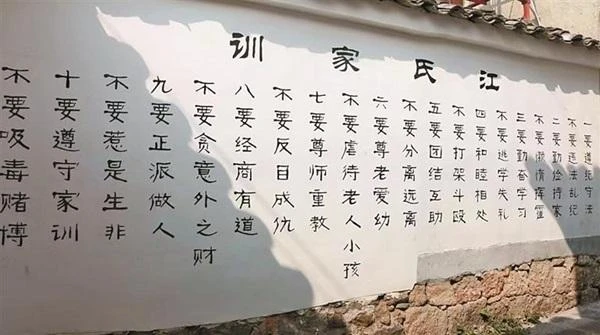 江氏家训
一要遵纪守法
不要违法乱纪
二要勤俭持家
不要懒惰挥霍
三要勤奋学习
不要逃学失礼
四要和睦相处
不要打架斗殴
五要团结互助
不要分离远离
六要尊老爱幼
不要虐待老人小孩
七要尊师重教
不要反日成仇
八要经商有道
不要贪意外之财
九要正派做人
不要惹是生非
十要遵守家训
不要吸毒赌博